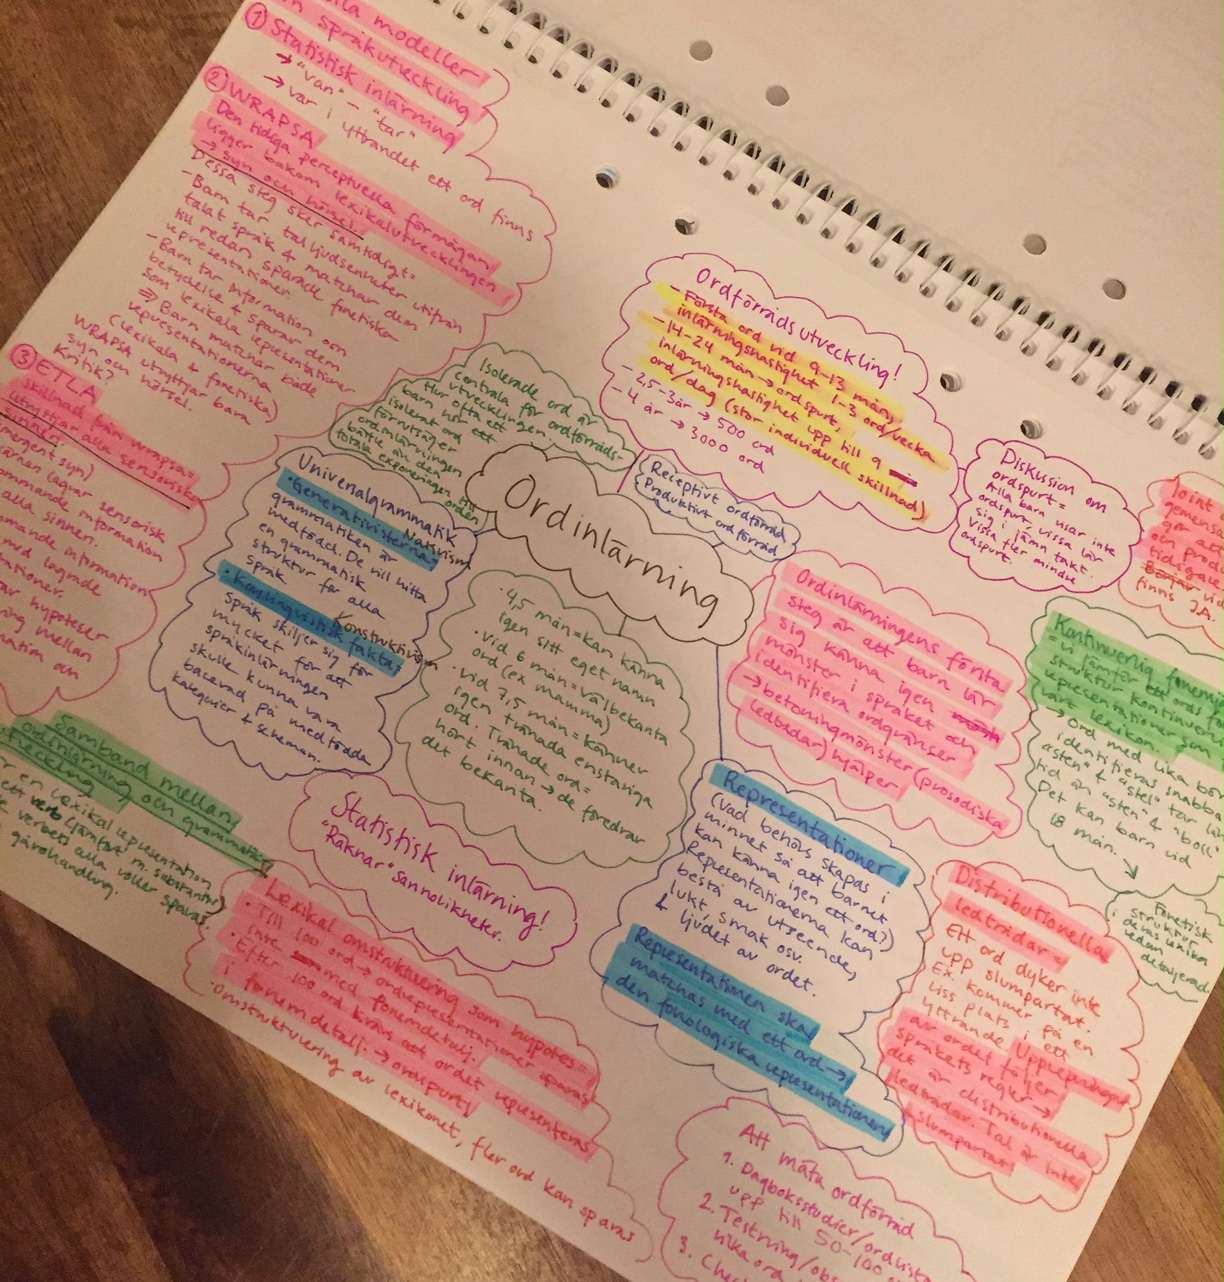 modeller
språkutveckling
① Statistisk inlärning
→ "van" - "tar"
→ var i yttrandet ett ord finns
② WRAPSA
Den tidiga perceptuella förmågan
ligger bakom lexikalutvecklingen
→ syn och hörsel.
Dessa steg sker samtidigt=
- Barn tar talljudsenheter utifrån
talat språk & matchar dem
till redan sparade fonetiska
representationer.
- Barn tar information om
betydelse & sparar dem
som lexikala representationer
⇒ Barn matchar både
representationerna
(lexikala & fonetiska)
WRAPSA utnyttjar bara
syn och hörsel.
Kritik?
③ ETLA
skillnad från wrapsa=
utnyttjar alla sensoriska
sinnen.
sensorisk
information
alla sinnen.
information
med lagrade
hypoteser
mellan
Isolerade ord är
centrala för ordförråds-
utvecklingen.
Hur ofta ett
barn hör ett
isolerat ord
förutsäger
ordinlärningen
bättre än den
totala exponeringen till
orden
Ordförrådsutveckling!
- Första ord vid 9-13 mån,
inlärningshastighet 1-3 ord/vecka
- 14-24 mån → ordspurt,
inlärningshastighet upp till 9
ord/dag (stor individuell skillnad)
- 2,5-3år → 500 ord
- 4 år → 3000 ord
Receptivt ordförråd
Produktivt ordförråd
Diskussion om
ordspurt=
Alla barn visar inte
ordspurt, vissa lär
sig i jämn takt.
Vissa fler mindre
ordspurt.
Joint
finns JA.
Universalgrammatik
Nativism
· Generativisterna=
grammatiken är
medfödd. De vill hitta
en grammatisk
struktur för alla
språk
Konstruktivism
språk skiljer sig för
mycket för att
språkinlärningen
skulle kunna vara
baserad på medfödda
kategorier & scheman.
Ordinlärning
· 4,5 mån=kan känna
igen sitt eget namn
· Vid 6 mån=välbekanta
ord (ex mamma)
· vid 7,5 mån=känner
igen tränade enstaka
ord. Tränade ord=
hört innan → de föredrar
det bekanta.
Ordinlärningens första
steg är att barn lär
sig känna igen
mönster i språket och
identifiera ordgränser
→ betoningmönster (prosodiska
ledtrådar) hjälper
Kontinuerlig
= vi jämför ett ords
struktur kontinuerligt
representationer som
vårt lexikon.
→ Ord med lika
identifieras
"asten" & "astel" tar
tid än "sten" & "boll"
Det kan barn vid
18 mån.
Fonetisk
struktur
deras lexikon
redan detaljerad
Samband mellan
ordinlärning och grammatik
utveckling
en lexikal representation
ett verb (jämfört m. substantiv)
verbets alla roller sparas.
görohandling.
Statistisk inlärning!
"Räknar" sannolikheter.
Representationer
(Vad behövs skapas i
minnet så att barnet
kan känna igen ett ord?)
Representationerna kan
bestå av utseende,
lukt, smak osv.
& ljudet av ordet.
Representationen ska
matchas med ett ord →
den fonologiska representationen
Distributionella
ledtrådar=
Ett ord dyker inte
upp slumpartat.
Ex. kommer på en
viss plats i ett
yttrande Upprepningar
av ordet följer
språkets regler →
det är distributionella
ledtrådar. Tal är inte
slumpartat
Lexikal omstrukturering som hypotes=
· Till 100 ord → ordrepresentationer sparas
inte med fonemdetalj.
· Efter 100 ord krävs att ordet representeras
i fonemdetalj. → ordspurt!
· Omstrukturering av lexikonet, fler ord kan sparas
Att mäta ordförråd
1. Dagboksstudier/ordlista
upp till 50-100
2. Testning/obs
olika ord
3.